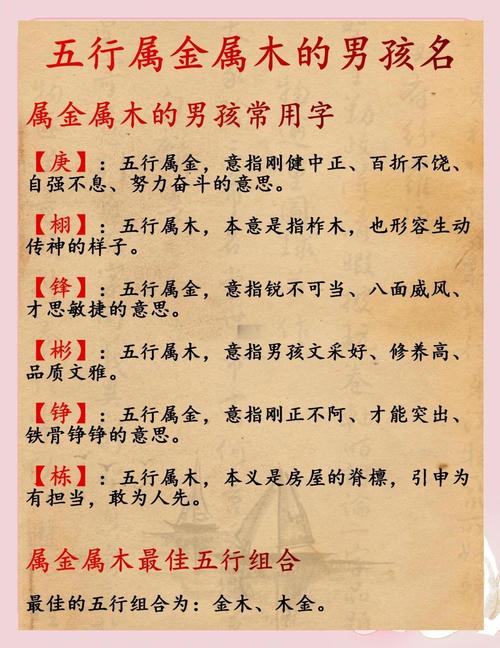 五行属金属木的男孩名
属金属木的男孩常用字
【庚】：五行属金，意指刚健中正、百折不饶、
自强不息、努力奋斗的意思。
【栩】：五行属木，本意是指柞木，也形容生动
传神的样子。
【锋】：五行属金，意指锐不可当、八面威风、
才思敏捷的意思。
【彬】：五行属木，意指男孩文采好、修养高、
品质文雅。
【铮】：五行属金，意指刚正不阿、才能突出、
铁骨铮铮的意思。
【栋】：五行属木，本义是房屋的脊檩，引申为
有担当，敢为人先。
属金属木最佳五行组合
最佳的五行组合为：金木、木金。